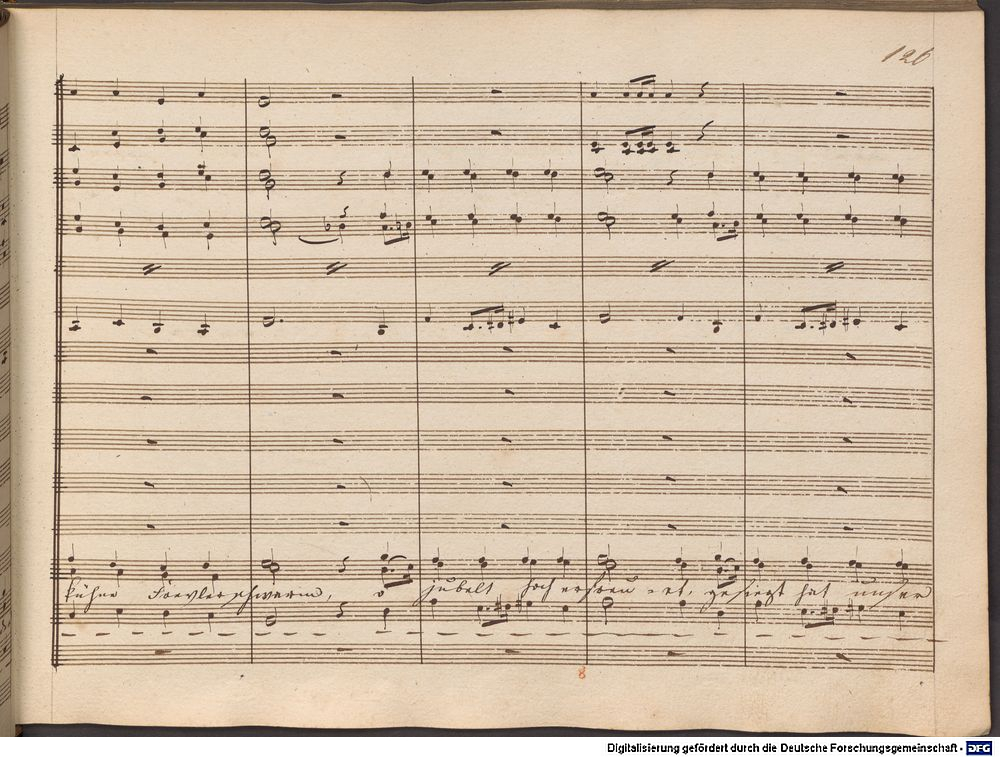 126
kühne Frevlerschwarm, o jubelt hoch erfreu - et, gesiegt hat unser
8
Digitalisierung gefördert durch die Deutsche Forschungsgemeinschaft - DFG